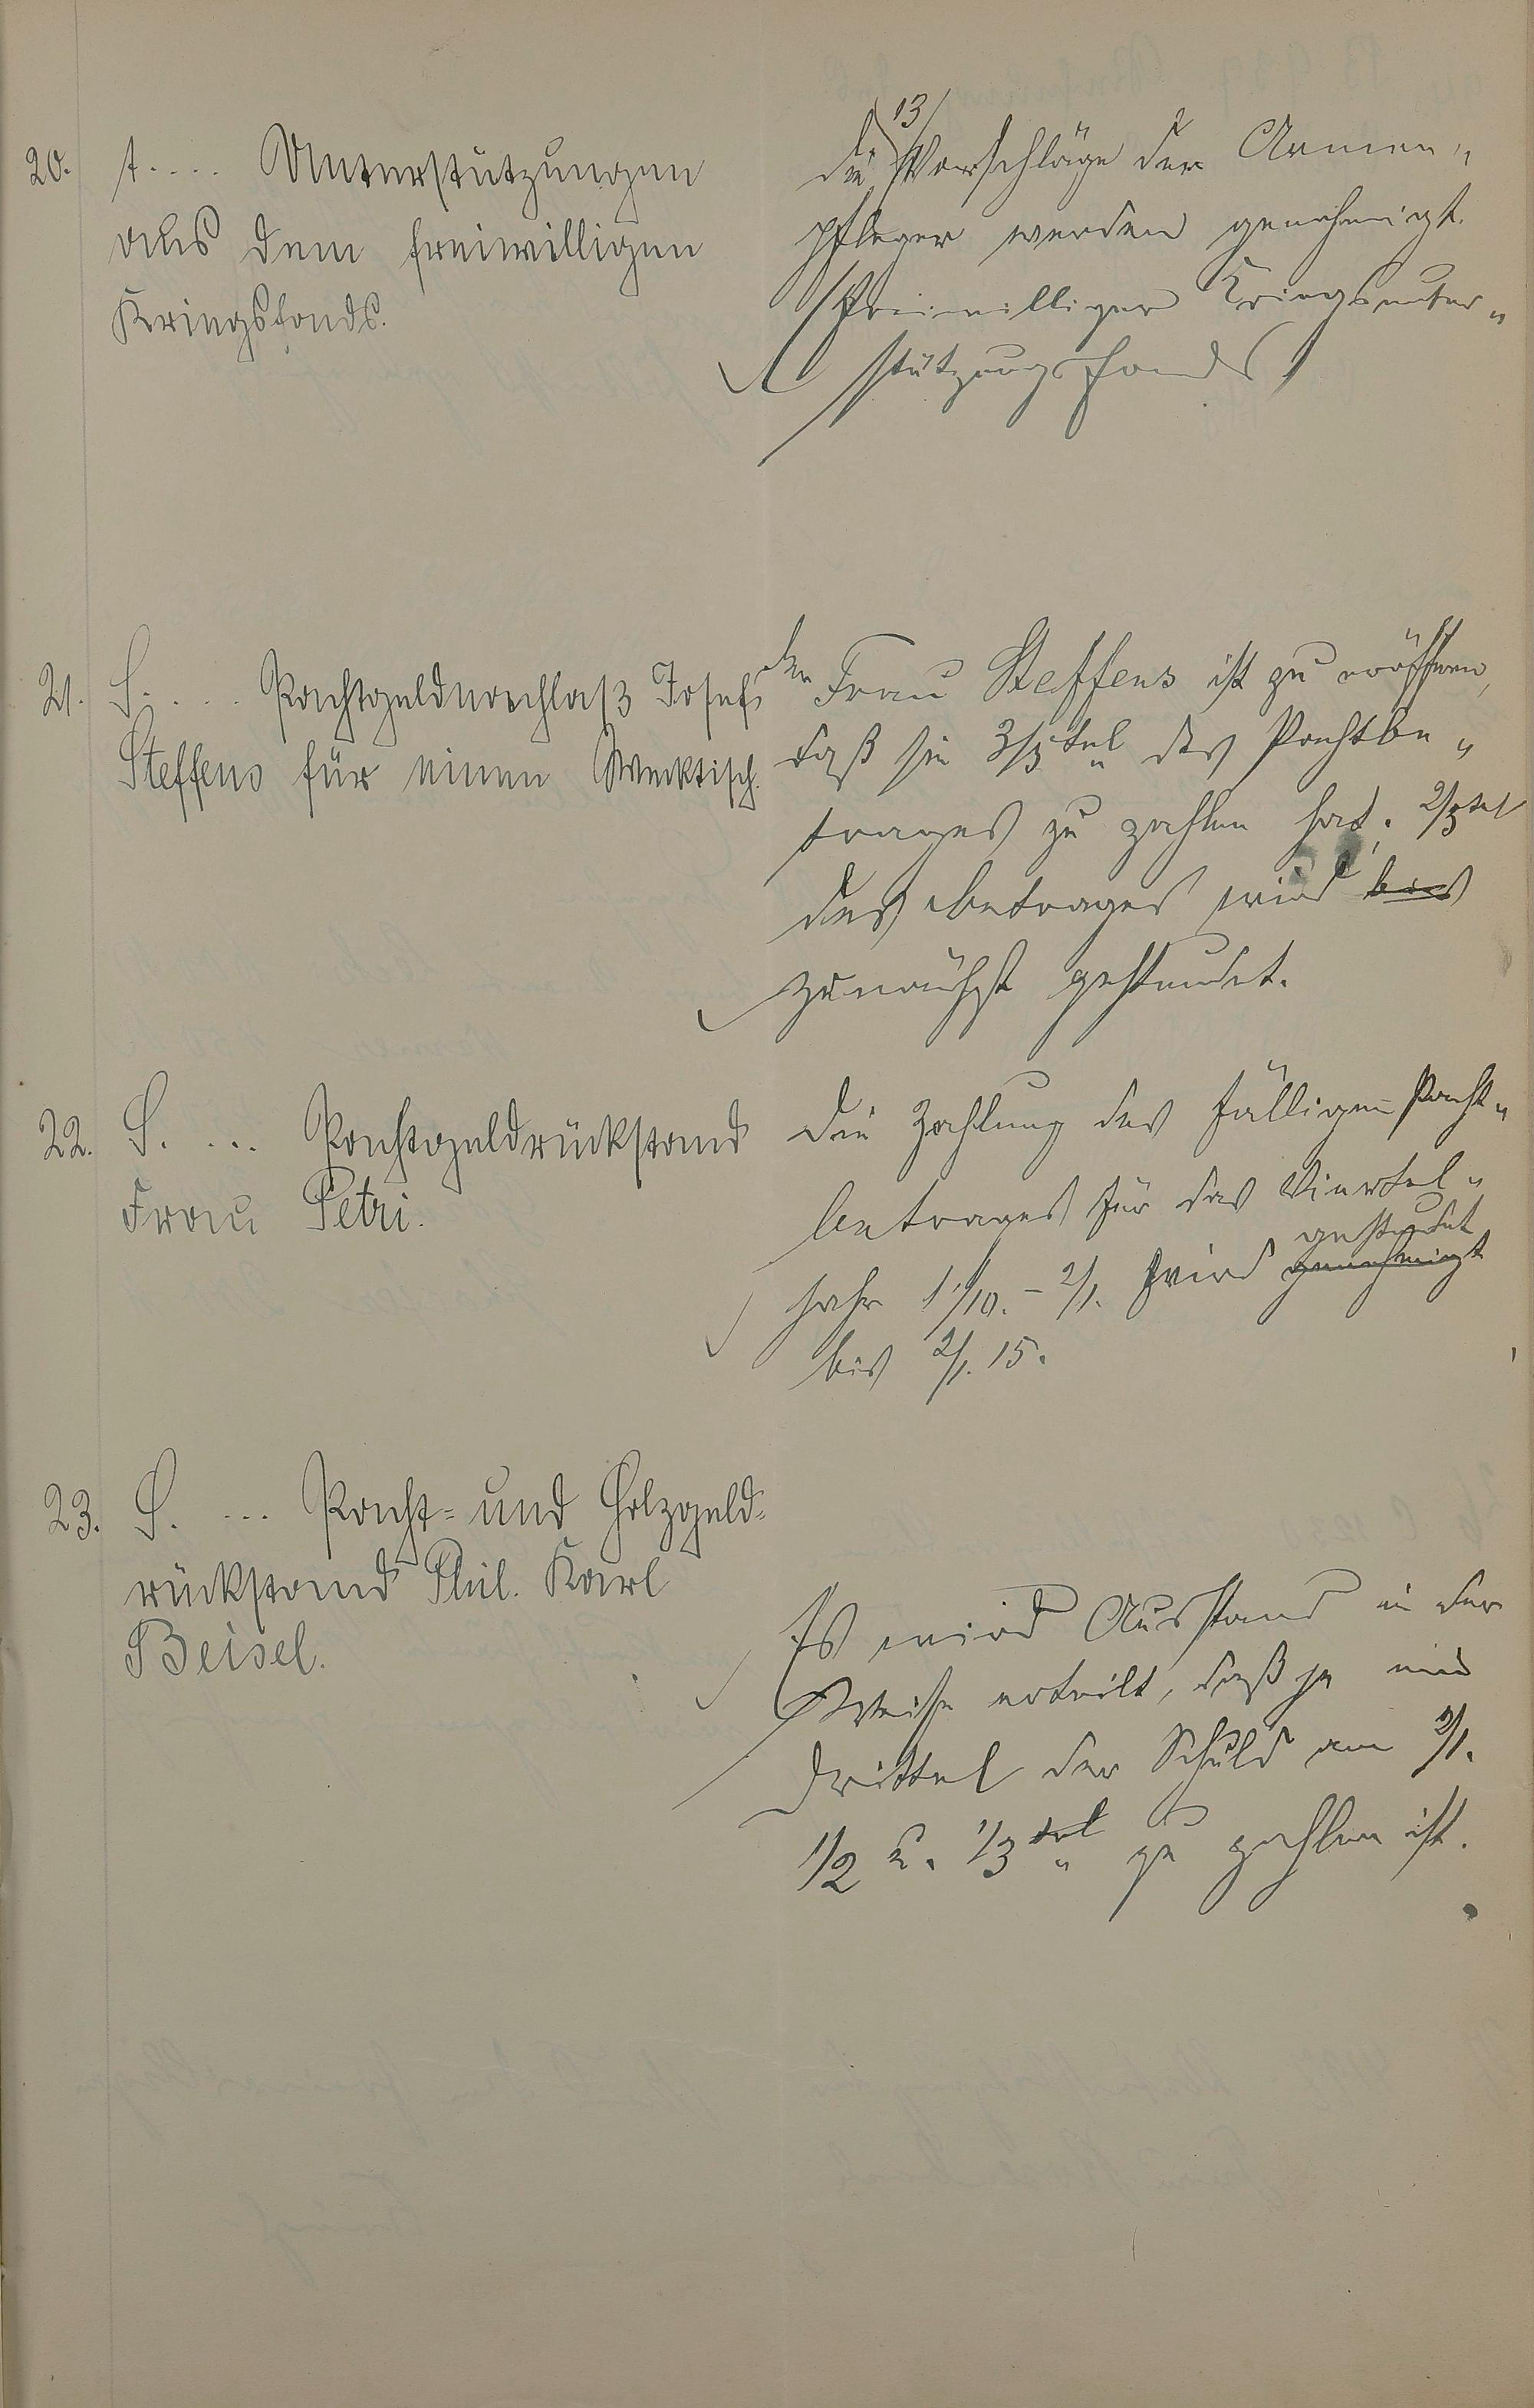 20. t. . . . Unterstützungen
aus dem freiwilligen
Kriegsfonds.
13
die Vorschläge der Armen„
pfleger werden genehmigt.
(Freiwilliger Kriegsunter„
stützungsfonds)
21. S. . . . Pachtgeldnachlaß Josef
Steffens für einen Marktisch.
der Frau Steffens ist zu eröffnen,
daß sie 3/5tel des Pachtbe„
trages zu zahlen hat. 2/5tel
des Betrages wird bis
zunächst gestundet.
22. S. . . . Pachtgeldrückstand
Frau Petri.
Die Zahlung des fälligen Pacht„
betrages für das Viertel„
gestundet
jahr 1/10. – 2/1. wird genehmigt
bis 2/1. 15.
23. S. . . . Pacht- und Holzgeld-
rückstand Phil. Karl
Beisel.
Es wird Ausstand in der
Weise erteilt, daß je ein
Drittel der Schuld am 2/1.
1/2 u. 1/3 tel zu zahlen ist.